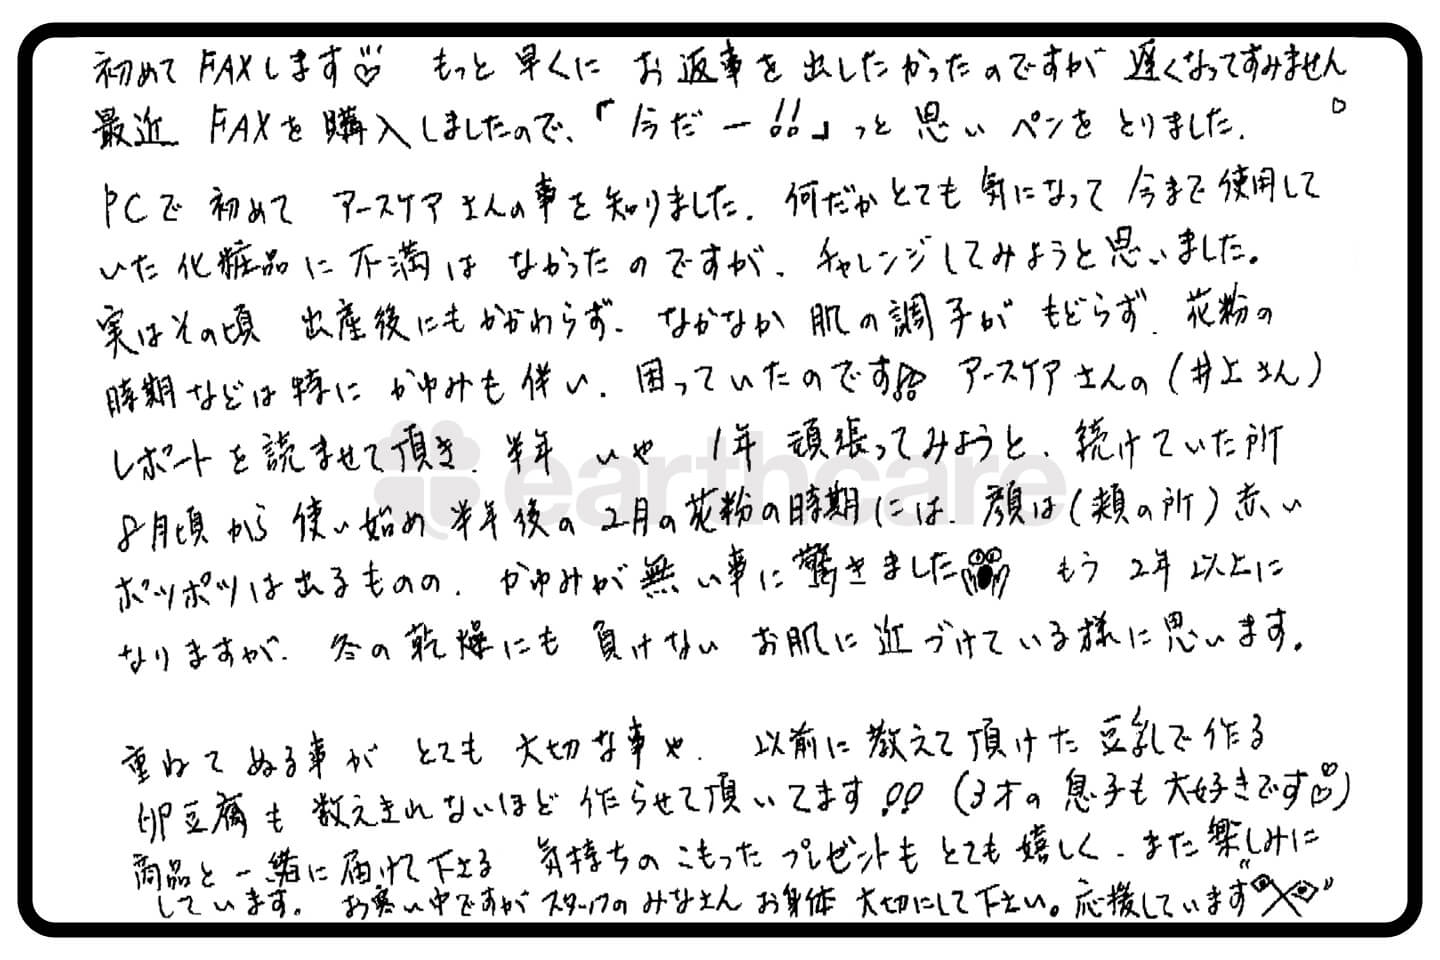 初めてFAXします♡ もっと早くに お返事を出したかったのですが 遅くなってすみません。
最近 FAXを購入しましたので、「今だー!!」っと思い ペンをとりました.
PCで初めて アースケアさんの事を知りました. 何だかとても気になって今まで使用して
いた化粧品に不満はなかったのですが、チャレンジしてみようと思いました。
実はその頃 出産後にもかかわらず、なかなか肌の調子がもどらず、花粉の
時期などは特に かゆみも伴い、困っていたのです!! アースケアさんの(井上さん)
レポートを読ませて頂き、半年 いや 1年 頑張ってみようと、続けていた所
8月頃から使い始め半年後の2月の花粉の時期には、顔は(頬の所)赤い
ポツポツは出るものの、かゆみが無い事に驚きました もう2年以上に
なりますが、冬の乾燥にも負けない お肌に近づけている様に思います。
重ねてぬる事が とても 大切な事や、以前に教えて頂けた豆乳で作る
卵豆腐も数えきれないほど作らせて頂いてます!! (3才の息子も大好きです♡)
商品と一緒に届けて下さる 気持ちのこもったプレゼントもとても嬉しく、また楽しみに
しています。 お寒い中ですがスタッフのみなさんお身体大切にして下さい。応援しています
earthcare